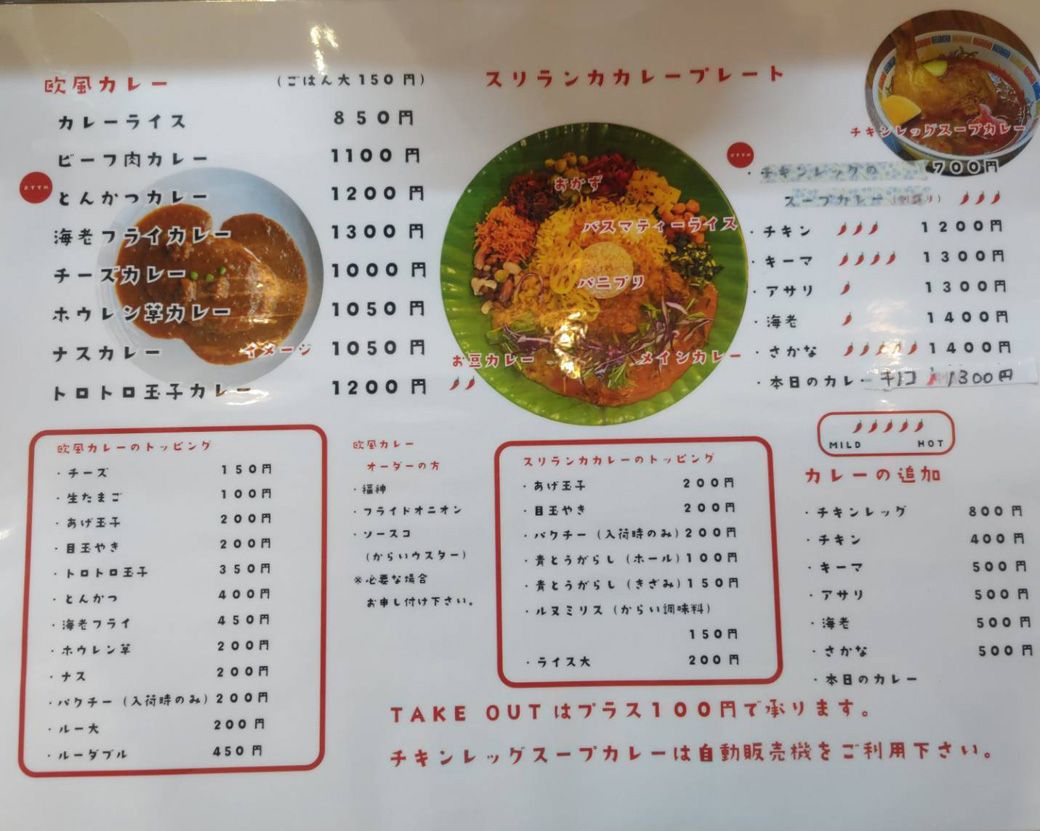 欧風カレー (ごはん大150円)
カレーライス 850円
ビーフ肉カレー 1100円
とんかつカレー 1200円
海老フライカレー 1300円
チーズカレー 1000円
ホウレン草カレー 1050円
ナスカレー 1050円
イメージ
トロトロ玉子カレー 1200円
スリランカカレープレート
おかず
バスマティーライス
パニプリ
お豆カレー
メインカレー
チキンレッグスープカレー
・チキンレッグの 700円
スープカレー
・チキン 1200円
・キーマ 1300円
・アサリ 1300円
・海老 1400円
・さかな 1400円
・本日のカレー キノコ 1300円
MILD HOT
欧風カレーのトッピング
・チーズ 150円
・生たまご 100円
・あげ玉子 200円
・目玉やき 200円
・トロトロ玉子 350円
・とんかつ 400円
・海老フライ 450円
・ホウレン草 200円
・ナス 200円
・パクチー(入荷時のみ) 200円
・ルー大 200円
・ルーダブル 450円
欧風カレー
オーダーの方
・福神
・フライドオニオン
・ソースコ
(からいウスター)
※必要な場合
お申し付け下さい。
スリランカカレーのトッピング
・あげ玉子 200円
・目玉やき 200円
・パクチー(入荷時のみ) 200円
・青とうがらし(ホール) 100円
・青とうがらし(きざみ) 150円
・ルヌミリス(からい調味料)
150円
・ライス大 200円
カレーの追加
・チキンレッグ 800円
・チキン 400円
・キーマ 500円
・アサリ 500円
・海老 500円
・さかな 500円
・本日のカレー
TAKE OUTはプラス100円で承ります。
チキンレッグスープカレーは自動販売機をご利用下さい。